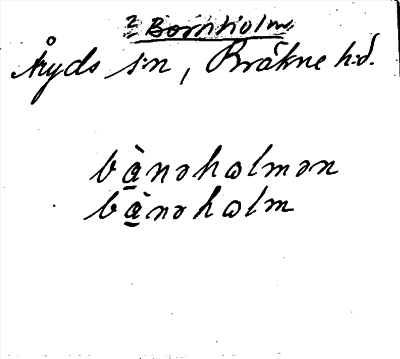 2 Bornholm
Åryds s:n, Bräkne h:d.
bànəholmən
bànəholm